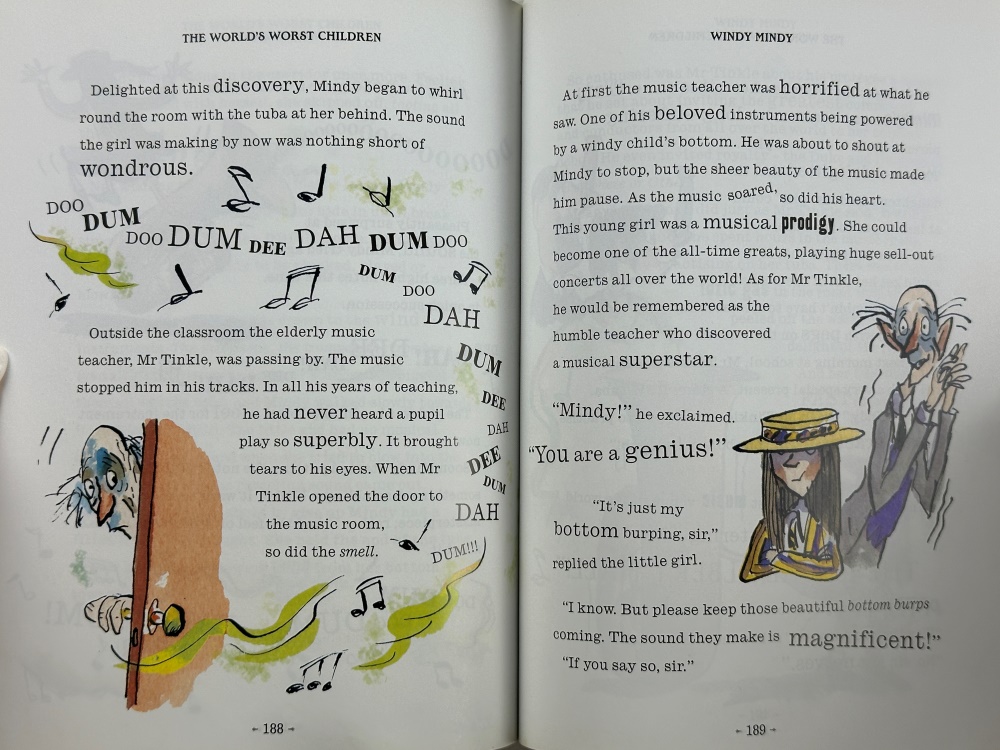 THE WORLD'S WORST CHILDREN
Delighted at this discovery, Mindy began to whirl
round the room with the tuba at her behind. The sound
the girl was making by now was nothing short of
wondrous.
DOO
DUM
DOO DUM DEE DAH DUM DOO
DUM
DOO
DAH
DUM
DEE
DAH
DEE
DUM
DAH
DUM!!!
Outside the classroom the elderly music
teacher, Mr Tinkle, was passing by. The music
stopped him in his tracks. In all his years of teaching,
he had never heard a pupil
play so superbly. It brought
tears to his eyes. When Mr
Tinkle opened the door to
the music room,
so did the smell.
- 188 -
WINDY MINDY
At first the music teacher was horrified at what he
saw. One of his beloved instruments being powered
by a windy child's bottom. He was about to shout at
Mindy to stop, but the sheer beauty of the music made
him pause. As the music soared, so did his heart.
This young girl was a musical prodigy. She could
become one of the all-time greats, playing huge sell-out
concerts all over the world! As for Mr Tinkle,
he would be remembered as the
humble teacher who discovered
a musical superstar.
"Mindy!" he exclaimed.
"You are a genius!"
"It's just my
bottom burping, sir,"
replied the little girl.
"I know. But please keep those beautiful bottom burps
coming. The sound they make is magnificent!"
"If you say so, sir."
- 189 -